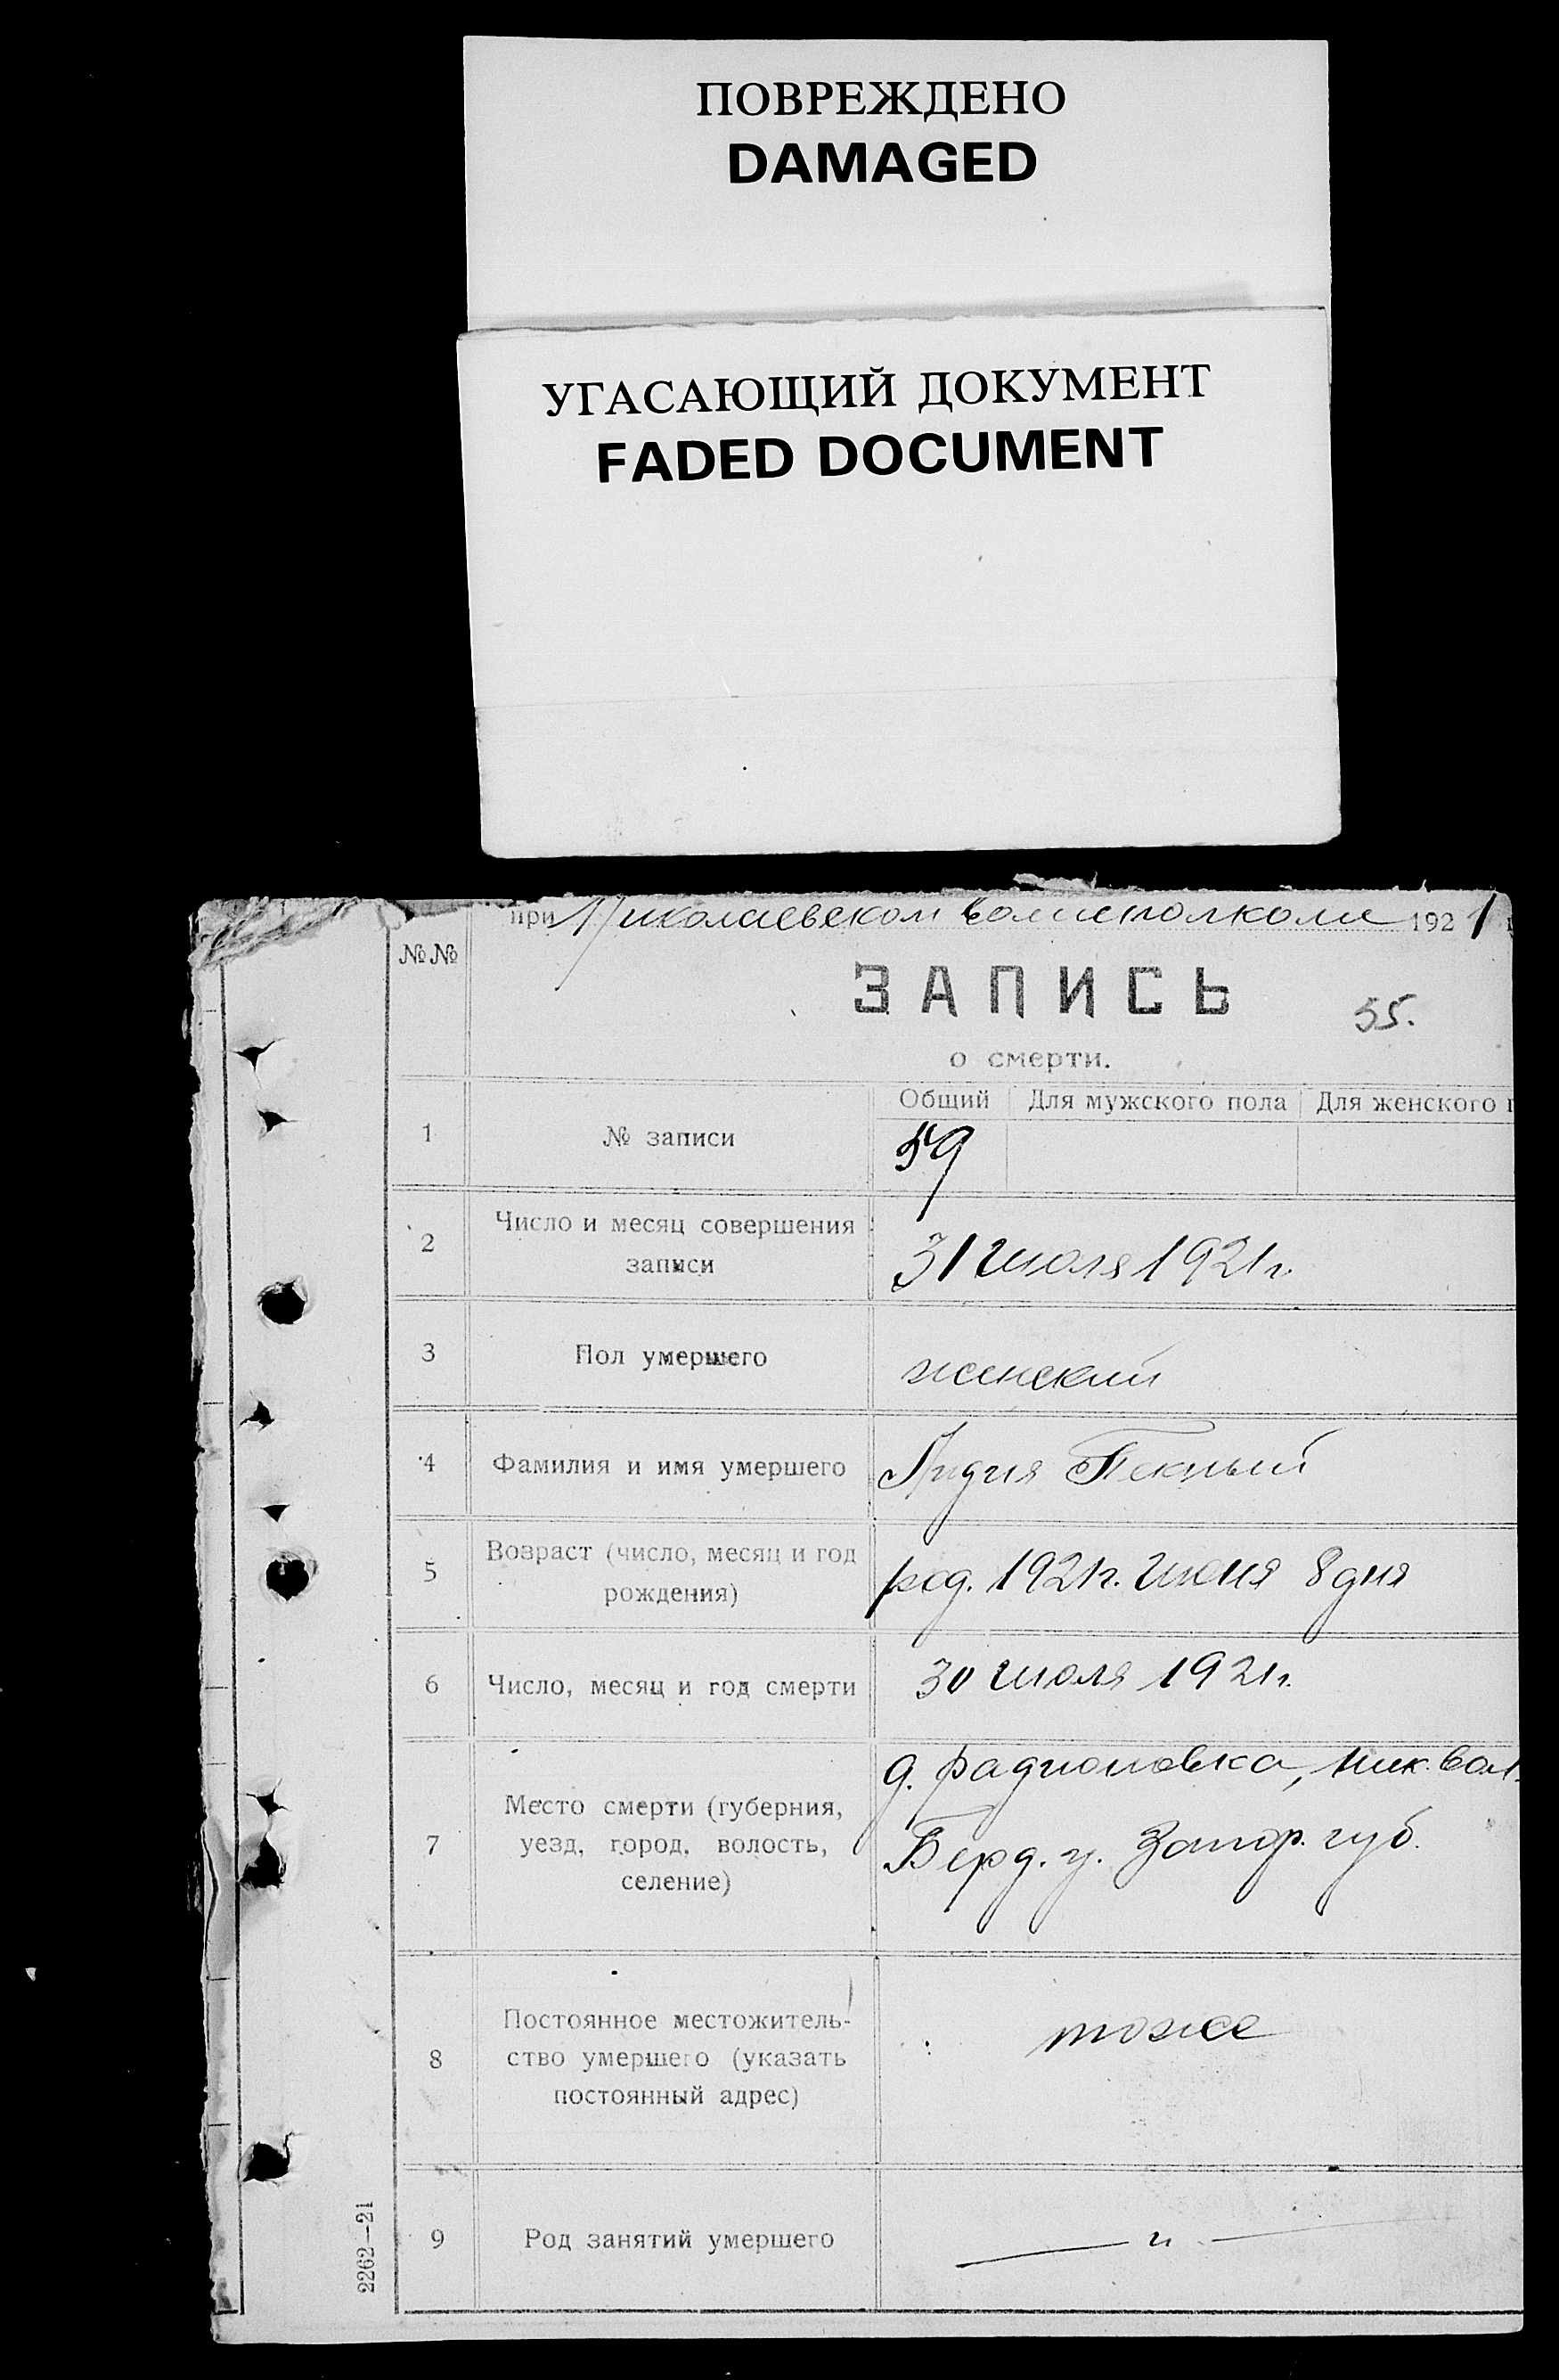 ПОВРЕЖДЕНО
DAMAGED
УГАСАЮЩИЙ ДОКУМЕНТ
FADED DOCUMENT
при Николаевском волисполкоме 1921
№№
ЗАПИСЬ
55.
о смерти.
Общий Для мужского пола Для женского п
1 № записи 59
2 Число и месяц совершения
записи
31 июля 1921г.
3 Пол умершего женский
4 Фамилия и имя умершего Лидия
5 Возраст (число, месяц и год
рождения)
род. 1921г. июня 8 дня
6 Число, месяц и год смерти 30 июля 1921г.
7 Место смерти (губерния,
уезд, город, волость,
селение)
д. Радионовка, Ник. вол.
Берд. у. Запор. губ.
8 Постоянное местожитель-
ство умершего (указать
постоянный адрес)
тоже
9 Род занятий умершего — " —
2262—21